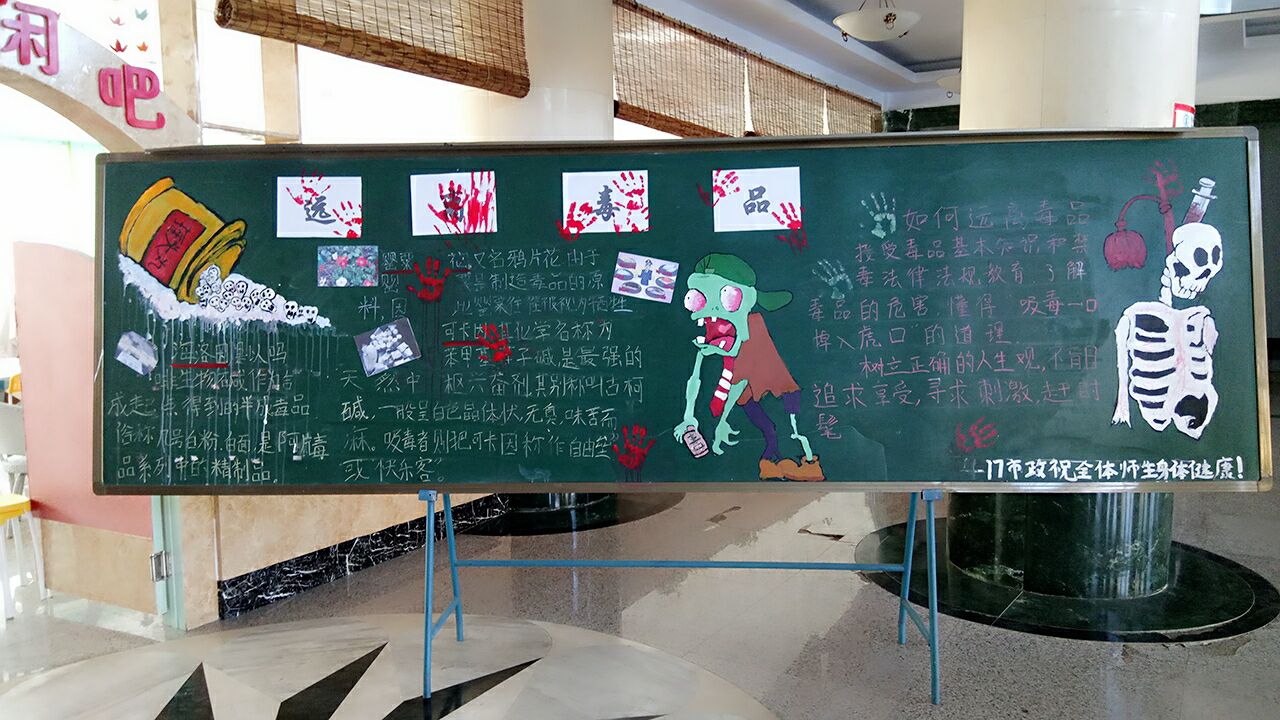 闲吧
远离毒品
罂粟花又名鸦片花由于
罂粟是制造毒品的原
料,因
可卡因其化学名称为
苯甲基芽子碱是最强的
天然中枢兴奋剂,其别称叫古柯
碱,一般呈白色晶体状,无臭,味苦而
麻。吸毒者则把可卡因称作自由
或"快乐客"。
海洛因是以吗
啡生物碱作为合
成起点得到的半成毒品
俗称几号白粉、白面,是阿片毒
品系列中的精制品。
如何远离毒品
接受毒品基本知识和禁
毒法律法规教育,了解
毒品的危害,懂得"吸毒一口
掉入虎口"的道理.
树立正确的人生观,不盲目
追求享受,寻求刺激,赶时
髦
门市政祝全体师生身体健康!